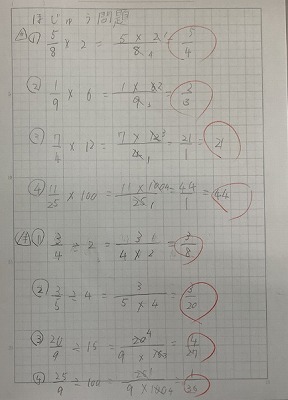 ほじゅう問題
① 5/8 × 2 = 5 × 2 1 / 8 4 = 5/4
② 1/9 × 6 = 1 × 6 2 / 9 3 = 2/3
③ 7/4 × 12 = 7 × 12 3 / 4 1 = 21/1 = 21
④ 11/25 × 100 = 11 × 100 4 / 25 1 = 44/1 = 44
① 3/4 ÷ 2 = 3 / 4 × 2 = 3/8
② 3/5 ÷ 4 = 3 / 5 × 4 = 3/20
③ 20/9 ÷ 15 = 20 4 / 9 × 15 3 = 4/27
④ 25/9 ÷ 100 = 25 1 / 9 × 100 4 = 1/36